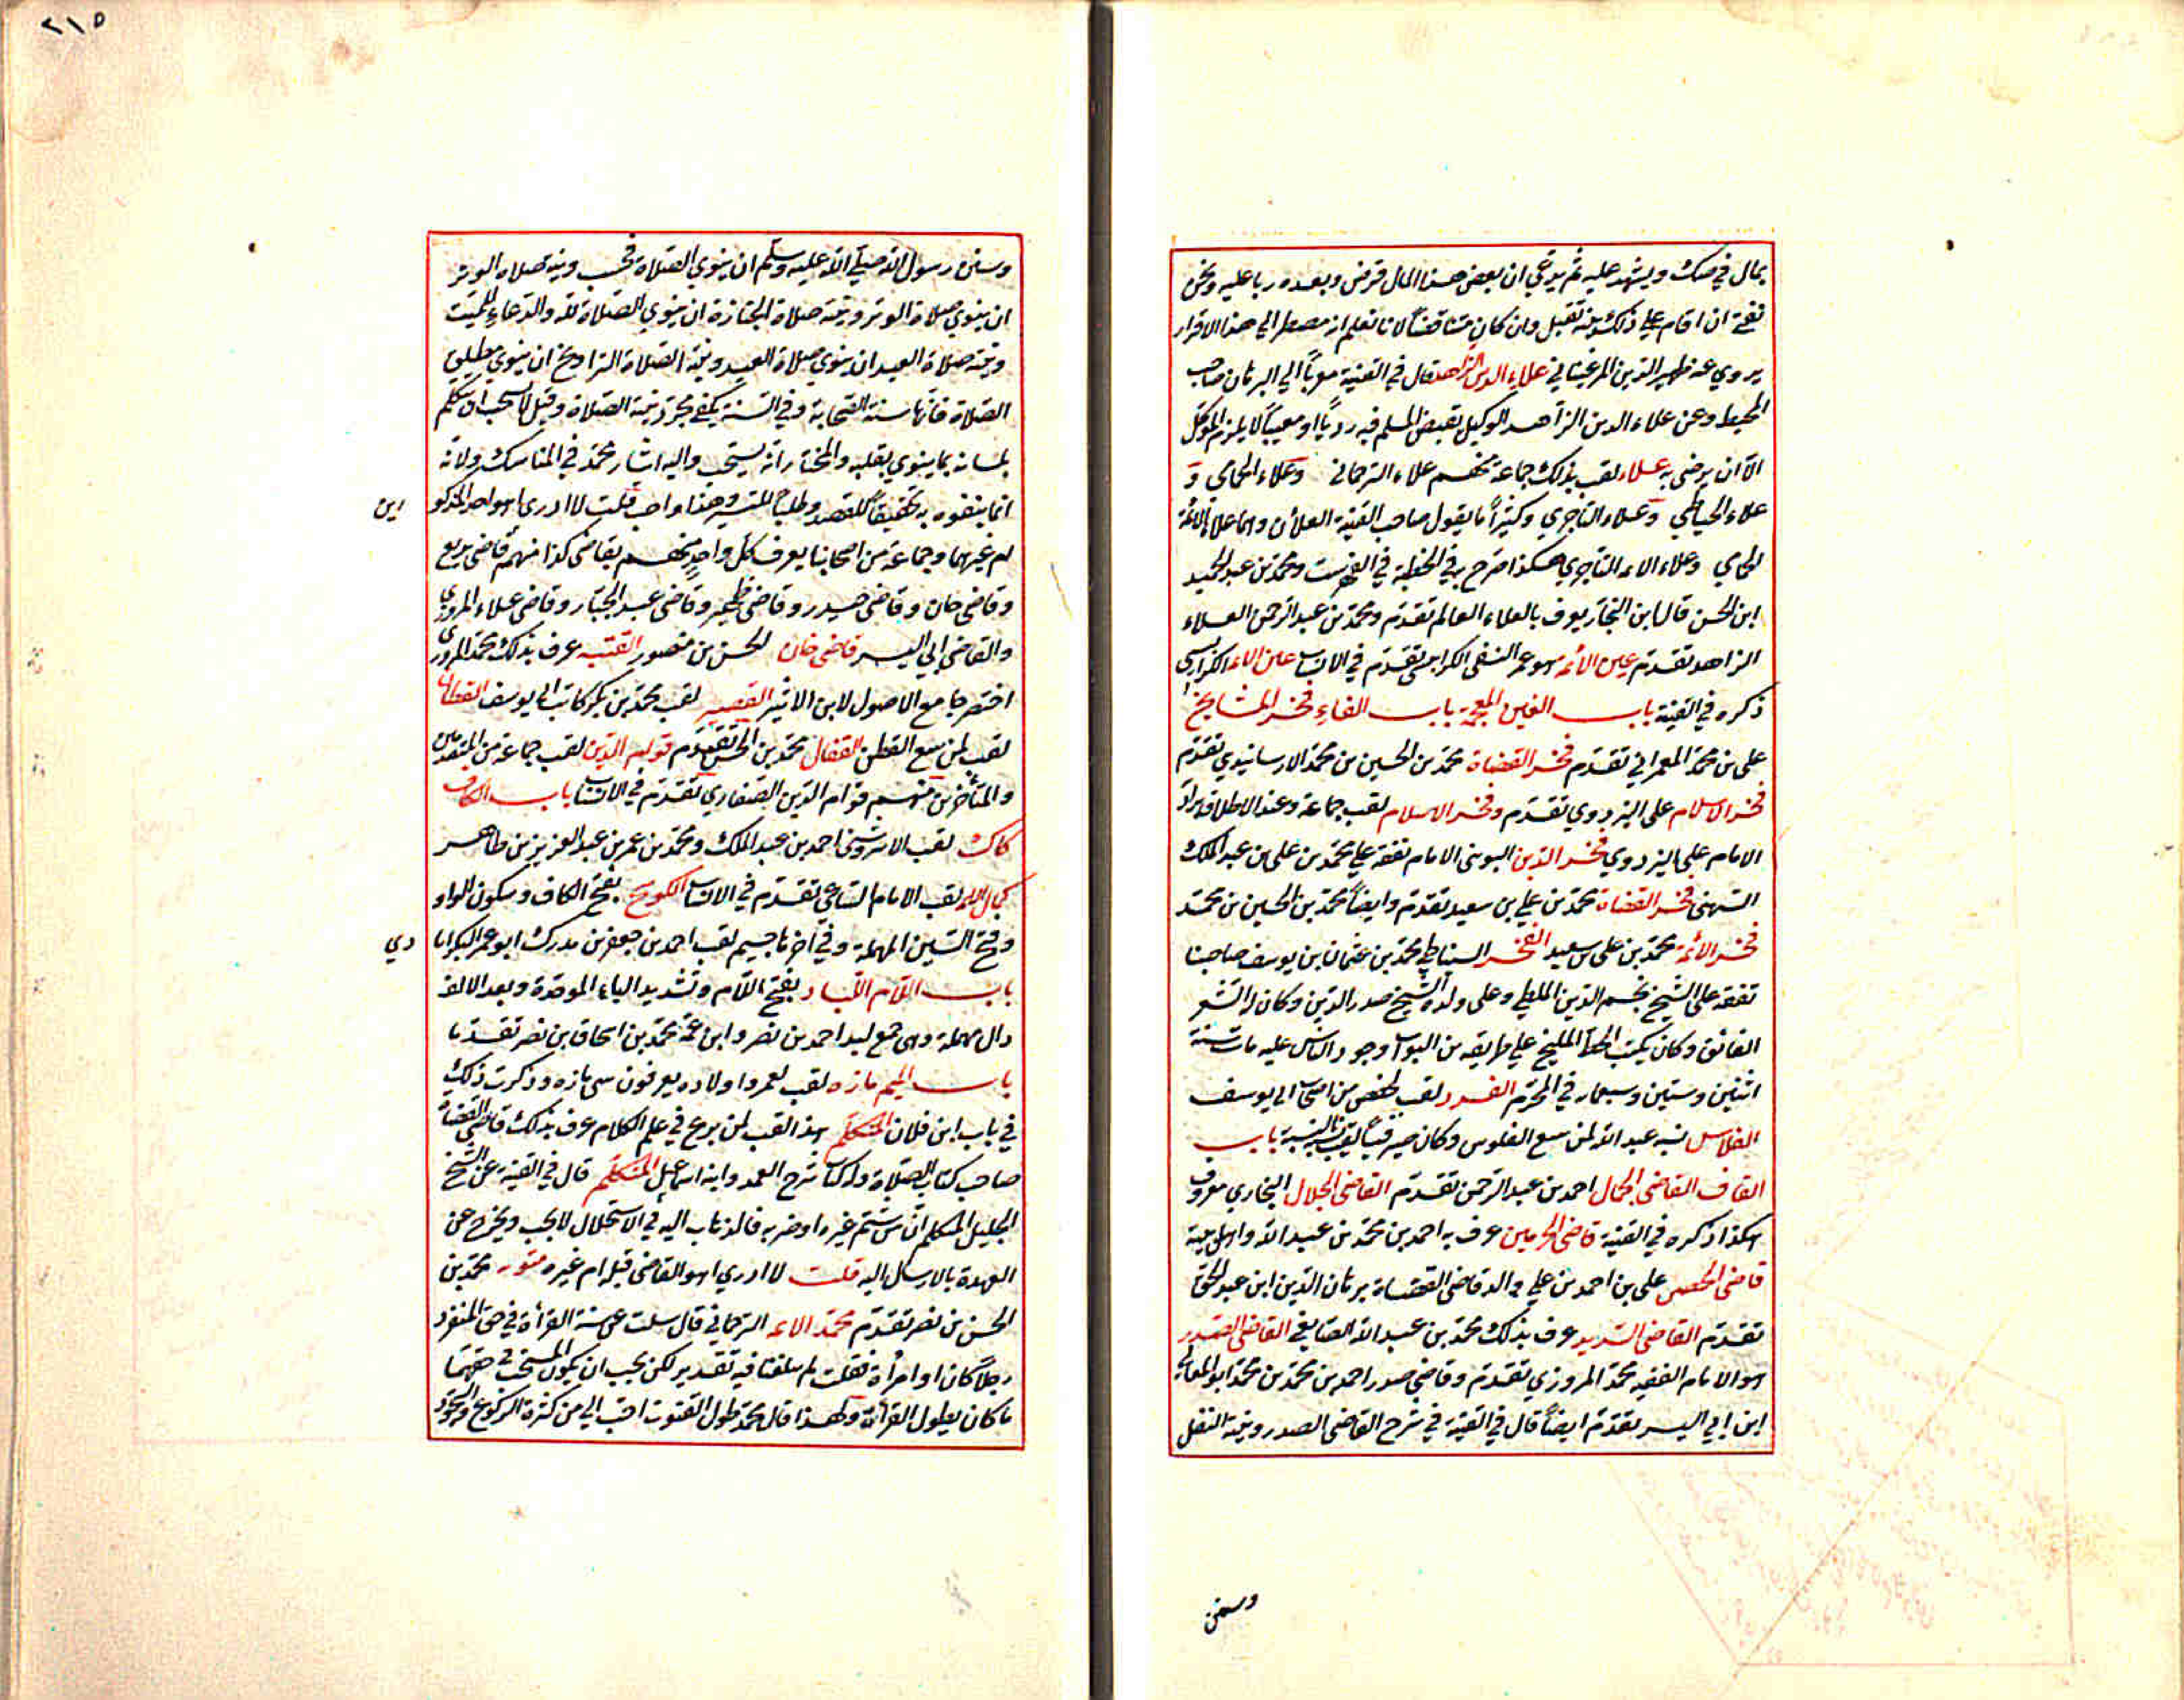 بمال في صك ويشهد عليه ثم يدعي ان بعض هذا المال قرض وبعده ربا عليه ونحن
نفتي ان اقام على ذلك بينة تقبل وان كان متناقضاً لانا نعلم انه مضطر الى هذا الاقرار
يروي عنه ظهير الدين المرغيناني علاء الدين الزاهد قال في القنية معزياً الى البرهان صاحب
المحيط وعن علاء الدين الزاهد الوكيل بقبض المسلم فيه ردياً او معيباً لا يلزم الموكل
الا ان يرضى به علاء لقب بذلك جماعة منهم علاء الترجماني وعلاء الحمامي و
علاء الخياطي وعلاء التاجري وكثيراً ما يقول صاحب القنية العلاآن وهما علاء الائمة
الحمامي وعلاء الائمة التاجري هكذا صرح به في الخطبة في الفهرست ومحمد بن عبد الحميد
ابن الحسن قال ابن النجار يعرف بالعلاء العالم تقدم ومحمد بن عبد الرحمن العلاء
الزاهد تقدم عين الائمة هو عمر النسفي الكرابيسي تقدم في الانساب عين الائمة الكرابيسي
ذكره في القنية باب الغين المعجمة باب الفاء فخر المشايخ
علي بن محمد العمراني تقدم فخر القضاة محمد بن الحسين بن محمد الارسانيدي تقدم
فخر الاسلام علي البزدوي تقدم وفخر الاسلام لقب جماعة وعند الاطلاق يراد
الامام علي البزدوي فخر الدين الامام تفقه على محمد بن علي بن عبد الملك
فخر القضاة محمد بن علي بن سعيد تقدم وايضاً محمد بن الحسين بن محمد
فخر الائمة محمد بن علي بن سعيد الفخر السنباطي محمد بن عثمان بن يوسف صاحبنا
تفقه على الشيخ نجم الدين الملطي وعلى ولده الشيخ صدر الدين وكان له الشعر
الفائق وكان يكتب الخط المليح على طريقة ابن البواب وجود الناس عليه مات سنة
اثنين وستين وسبعمائة في المحرم الفرد لقب لشخص من اصحاب ابي يوسف
الفلاس نسبه عبد الله لمن يبيع الفلوس وكان صيرفياً لقب بالنسبة باب
القاف القاضي الجمال احمد بن عبد الرحمن تقدم القاضي الجلال البخاري معروف
هكذا ذكره في القنية قاضي الحرمين عرف به احمد بن محمد بن عبد الله واهل بيته
قاضي الحصن علي بن احمد بن علي والد قاضي القضاة برهان الدين ابن عبد الحق
تقدم القاضي السديد عرف بذلك محمد بن عبد الله الصايغي القاضي الصدر
هو الامام الفقيه محمد المروزي تقدم وقاضي صدر احمد بن محمد بن محمد ابو المعالي
ابن ابي اليسر تقدم ايضاً قال في القنية في شرح القاضي الصدر ونية النفل
وسنن
٢١٥
وسنن رسول الله صلى الله عليه وسلم ان ينوي الصلاة فحسب ونية صلاة الوتر
ان ينوي صلاة الوتر ونية صلاة الجنازة ان ينوي الصلاة لله والدعاء للميت
ونية صلاة العيد ان ينوي صلاة العيد ونية الصلاة التراويح ان ينوي مطلق
الصلاة فانها سنة الصحابة وفي السنة يكفي مجرد نية الصلاة وقيل لا يستحب ان يتكلم
بلسانه بما ينوي بقلبه والمختار انه يستحب واليه اشار محمد في المناسك ولانه
انما يتفوه به تحقيقاً للقصد وطلباً للتيسير وهذا واجب قلت لا ادري اهو احد المذكو
رين
ام غيرهما وجماعة من اصحابنا يعرف كل واحد منهم بقاضي كذا منهم قاضي بديع
وقاضي خان وقاضي حيدر وقاضي ظهير وقاضي عبد الجبار وقاضي علاء المروزي
والقاضي ابي اليسر قاضي خان الحسن بن منصور القتبية عرف بذلك محمد المروزي
اختصر جامع الاصول لابن الاثير القصير لقب محمد بن بكر كاتب ابي يوسف القطان
لقب لمن يبيع القطن القفال محمد بن الحسن تقدم قوام الدين لقب جماعة من المتقدمين
والمتأخرين منهم قوام الدين الصفاري تقدم في الانساب باب الكاف
كاك لقب احمد بن عبد الملك ومحمد بن عمر بن عبد العزيز بن طاهر
كمال الائمة لقب الامام تقدم في الانساب الكوسج بفتح الكاف وسكون الواو
وفتح السين المهملة وفي اخرها جيم لقب احمد بن جعفر بن مدرك ابو عمر البكراباد
دي
باب اللام اللباد بفتح اللام وتشديد الباء الموحدة وبعد الالف
دال مهملة وهي جمع لبد احمد بن نصر وابن عمه محمد بن اسحاق بن نصر تقدما
باب الميم مازه لقب لعمر واولاده يعرفون ببني مازه وذكرت ذلك
في باب ابن فلان المتكلم هذا لقب لمن برع في علم الكلام عرف بذلك قاضي القضاة
صاحب كتاب الصلاة وله كتاب شرح العمد وابنه اسماعيل المتكلم قال في القنية عن الشيخ
الجليل المتكلم ان من شتم غيره او ضربه فالذهاب اليه في الاستحلال لا يجب ويخرج عن
العهدة بالارسال اليه قلت لا ادري اهو القاضي قبله ام غيره متويه محمد بن
الحسن بن نصر تقدم محمد الائمة الترجماني قال سئلت عن سنة القرأة في حق المنفرد
رجلاً كان او امرأة فقلت لم يبلغنا فيه تقدير لكن يجب ان يكون المستحب في حقهما
ما كان يطول القرأة ولهذا قال محمد طول القنوت احب الي من كثرة الركوع والسجود